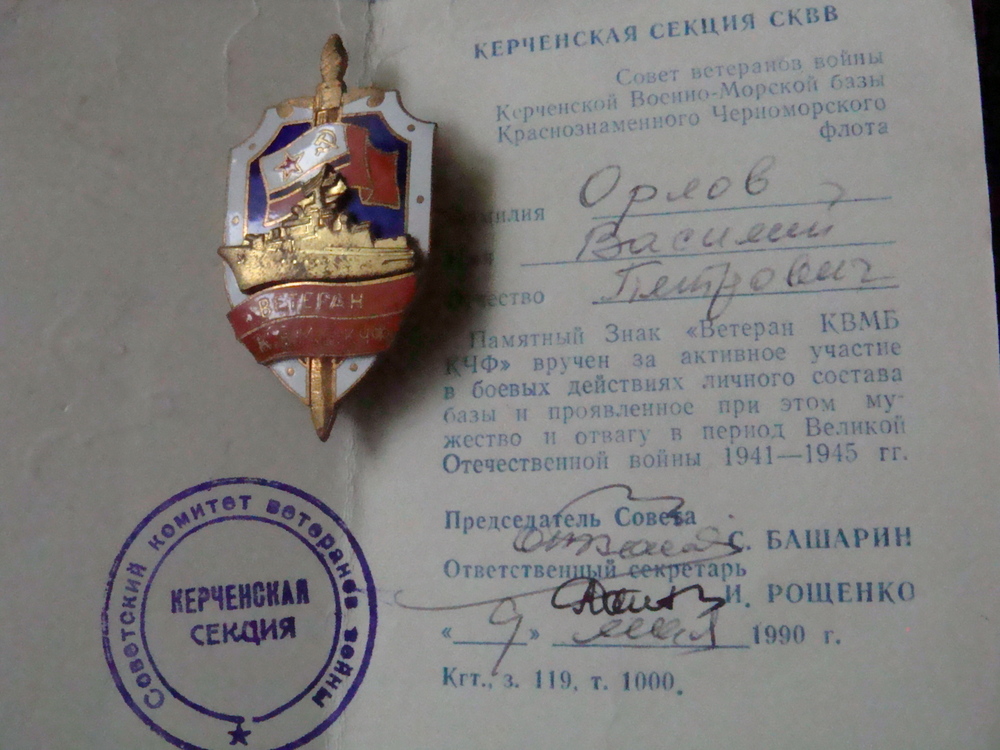 КЕРЧЕНСКАЯ СЕКЦИЯ СКВВ
Совет ветеранов войны
Керченской Военно-Морской базы
Краснознаменного Черноморского
флота
Фамилия Орлов
Имя Василий
Отчество Петрович
Памятный Знак «Ветеран КВМБ
КЧФ» вручен за активное участие
в боевых действиях личного состава
базы и проявленное при этом му-
жество и отвагу в период Великой
Отечественной войны 1941—1945 гг.
Председатель Совета
С. БАШАРИН
Ответственный секретарь
И. РОЩЕНКО
«9» мая 1990 г.
Кгт., з. 119, т. 1000.
ВЕТЕРАН
Советский комитет ветеранов войны
КЕРЧЕНСКАЯ
СЕКЦИЯ